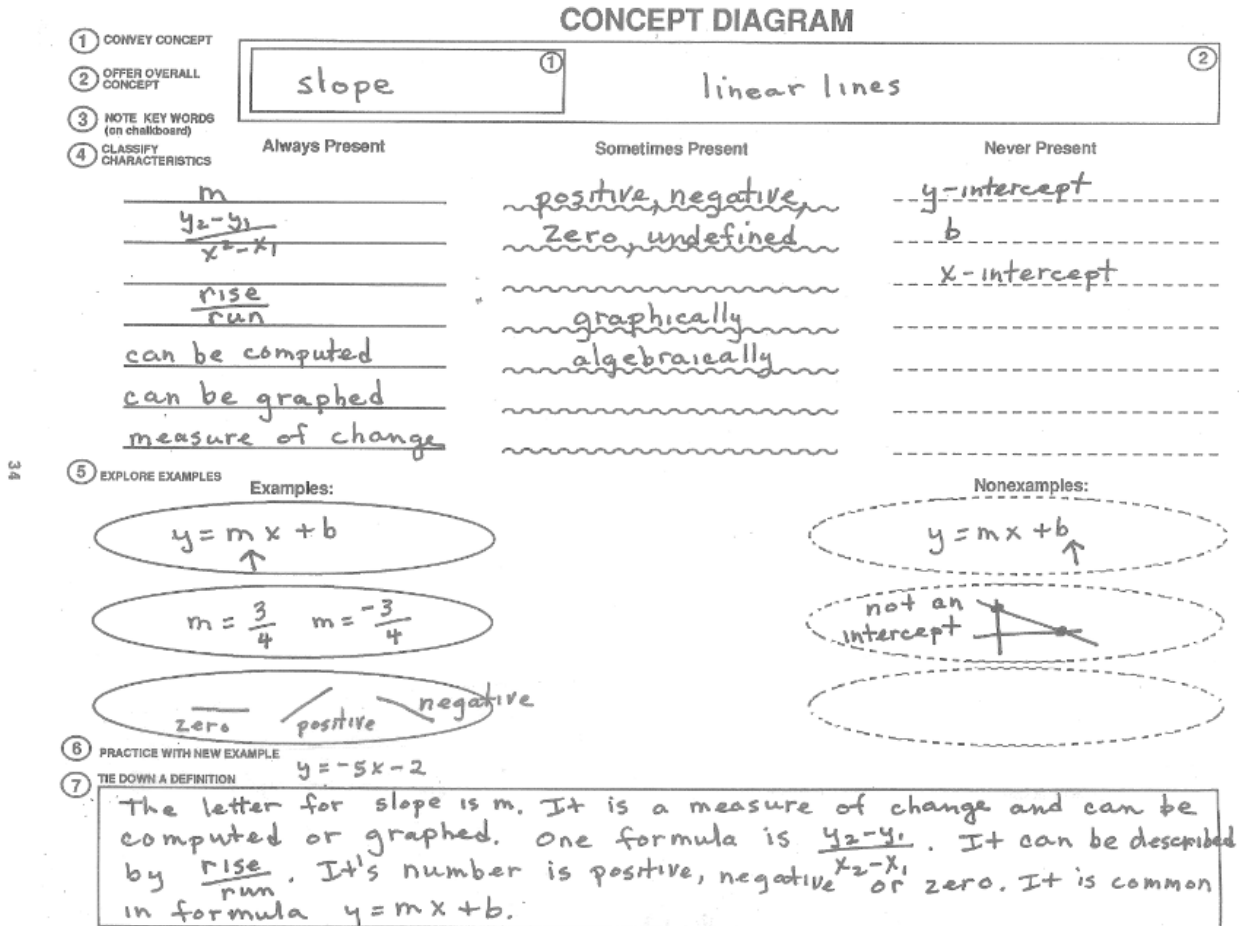 CONCEPT DIAGRAM
① CONVEY CONCEPT
② OFFER OVERALL CONCEPT
③ NOTE KEY WORDS
(on chalkboard)
④ CLASSIFY CHARACTERISTICS
slope ①
linear lines ②
Always Present
m
y₂-y₁
x²-x₁
rise
run
can be computed
can be graphed
measure of change
Sometimes Present
positive, negative,
zero, undefined
graphically
algebraically
Never Present
y-intercept
b
x-intercept
34
⑤ EXPLORE EXAMPLES
Examples:
y = mx + b
↑
m = 3/4 m = -3/4
zero positive negative
Nonexamples:
y = mx + b
↑
not an
intercept
⑥ PRACTICE WITH NEW EXAMPLE
y = -5x - 2
⑦ TIE DOWN A DEFINITION
The letter for slope is m. It is a measure of change and can be
computed or graphed. One formula is y₂-y₁/x₂-x₁. It can be described
by rise/run. It's number is positive, negative or zero. It is common
in formula y = mx + b.